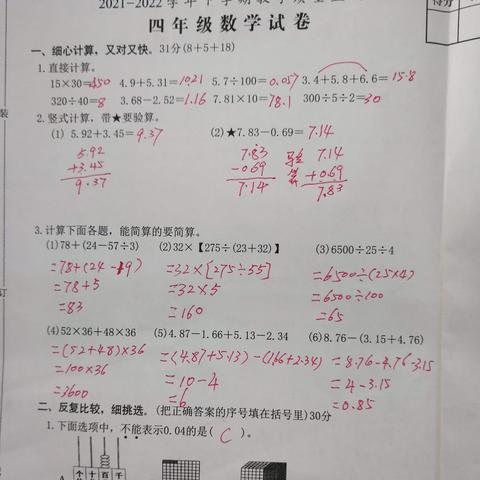 2021-2022学年下学期教学质量
得分
四年级数学试卷
一、细心计算，又对又快。31分(8+5+18)
1.直接计算。
15×30=450 4.9+5.31=10.21 5.7÷100=0.057 3.4+5.8+6.6=15.8
320÷40=8 3.68-2.52=1.16 7.81×10=78.1 300÷5÷2=30
2.竖式计算，带★要验算。
(1) 5.92+3.45=9.37 (2)★7.83-0.69=7.14
5.92 7.83 验 7.14
+3.45 -0.69 算 +0.69
9.37 7.14 7.83
3.计算下面各题，能简算的要简算。
(1)78+(24-57÷3) (2)32×【275÷(23+32)】 (3)6500÷25÷4
=78+(24-19) =32×[275÷55] =6500÷(25×4)
=78+5 =32×5 =6500÷100
=83 =160 =65
(4)52×36+48×36 (5)4.87-1.66+5.13-2.34 (6)8.76-(3.15+4.76)
=(52+48)×36 =(4.87+5.13)-(1.66+2.34) =8.76-4.76-3.15
=100×36 =10-4 =4-3.15
=3600 =6 =0.85
二、反复比较，细挑选。(把正确答案的序号填在括号里)30分
1.下面选项中，不能表示0.04的是( C )。
A
个 十 百 千
装
订